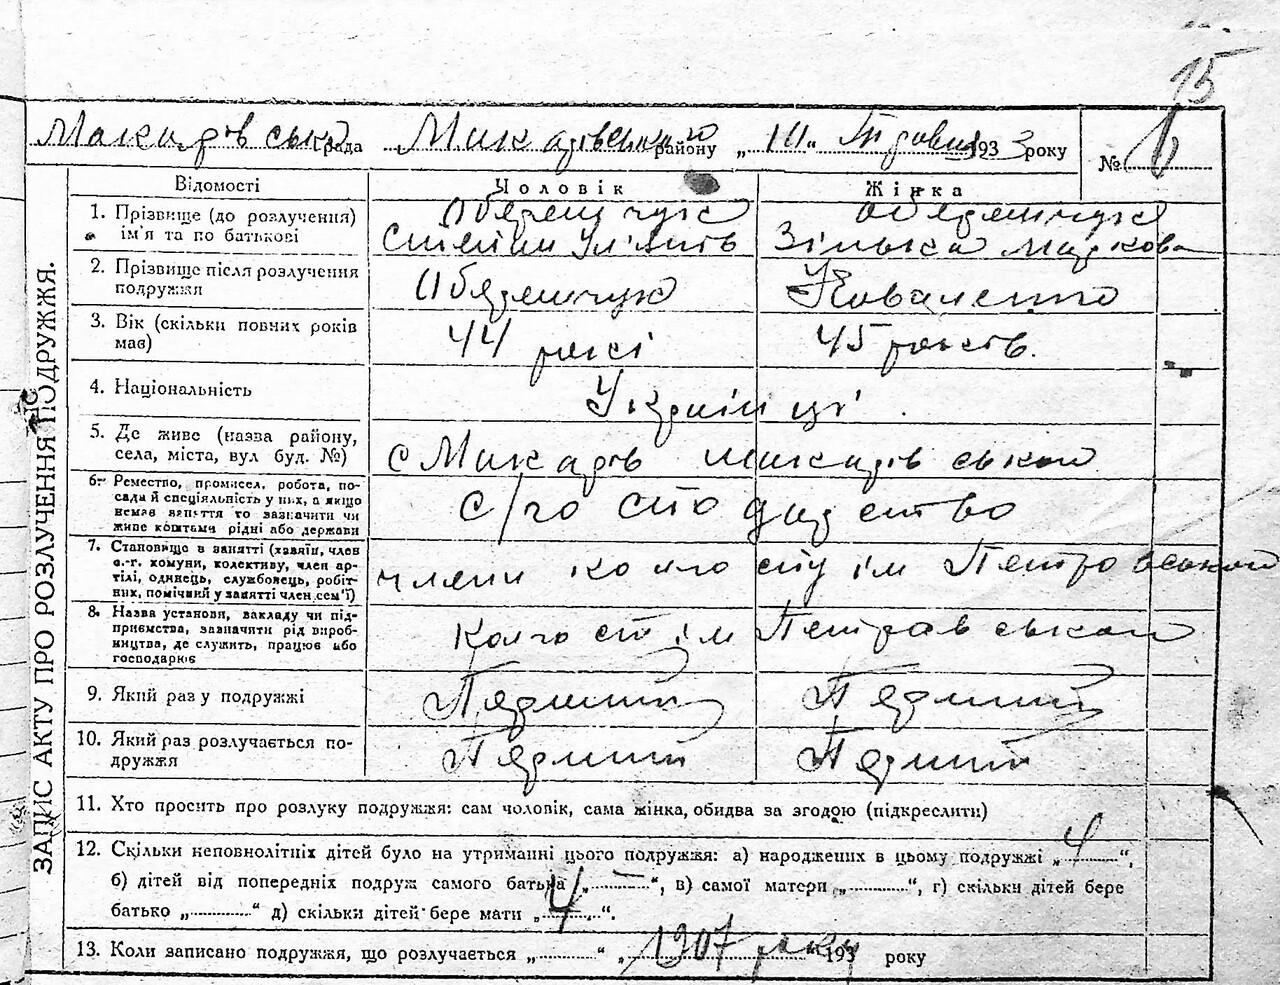 15
Макарівська рада Макарівський району „10“ Травня 1933 року № 6
Відомості Чоловік Жінка
1. Прізвище (до розлучення) ім'я та по батькові
2. Прізвище після розлучення подружжя Коваленко
3. Вік (скільки повних років мав) 44 рокі 45 років.
4. Національність Українці.
5. Де живе (назва району, села, міста, вул буд. №) с Макарів Макарівський
6. Ремество, промисел, робота, посада й спеціяльність у них, а якщо немав заняття то зазначити чи живе коштами рідні або держави с/го
7. Становище в занятті (хазяїн, член с.-г. комуни, колективу, член артілі, одинець, службовець, робітник, помічний у занятті член сем'ї) члени колгоспу ім Петровського
8. Назва установи, вакладу чи підприємства, зазначити рід виробництва, де служить, працює або господарює Колгосп ім
9. Який раз у подружжі Первий Первий
10. Який раз розлучається подружжя Первий Первий
11. Хто просить про розлуку подружжя: сам чоловік, сама жінка, обидва за згодою (підкреслити)
12. Скільки неповнолітніх дітей було на утриманні цього подружжя: а) народжених в цьому подружжі „4“,
б) дітей від попередніх подруж самого батька „–“, в) самої матери „“, г) скільки дітей бере
батько „“ д) скільки дітей бере мати „4“.
13. Коли записано подружжя, що розлучається „“ „1907 року 193 року
ЗАПИС АКТУ ПРО РОЗЛУЧЕННЯ ПОДРУЖЖЯ.